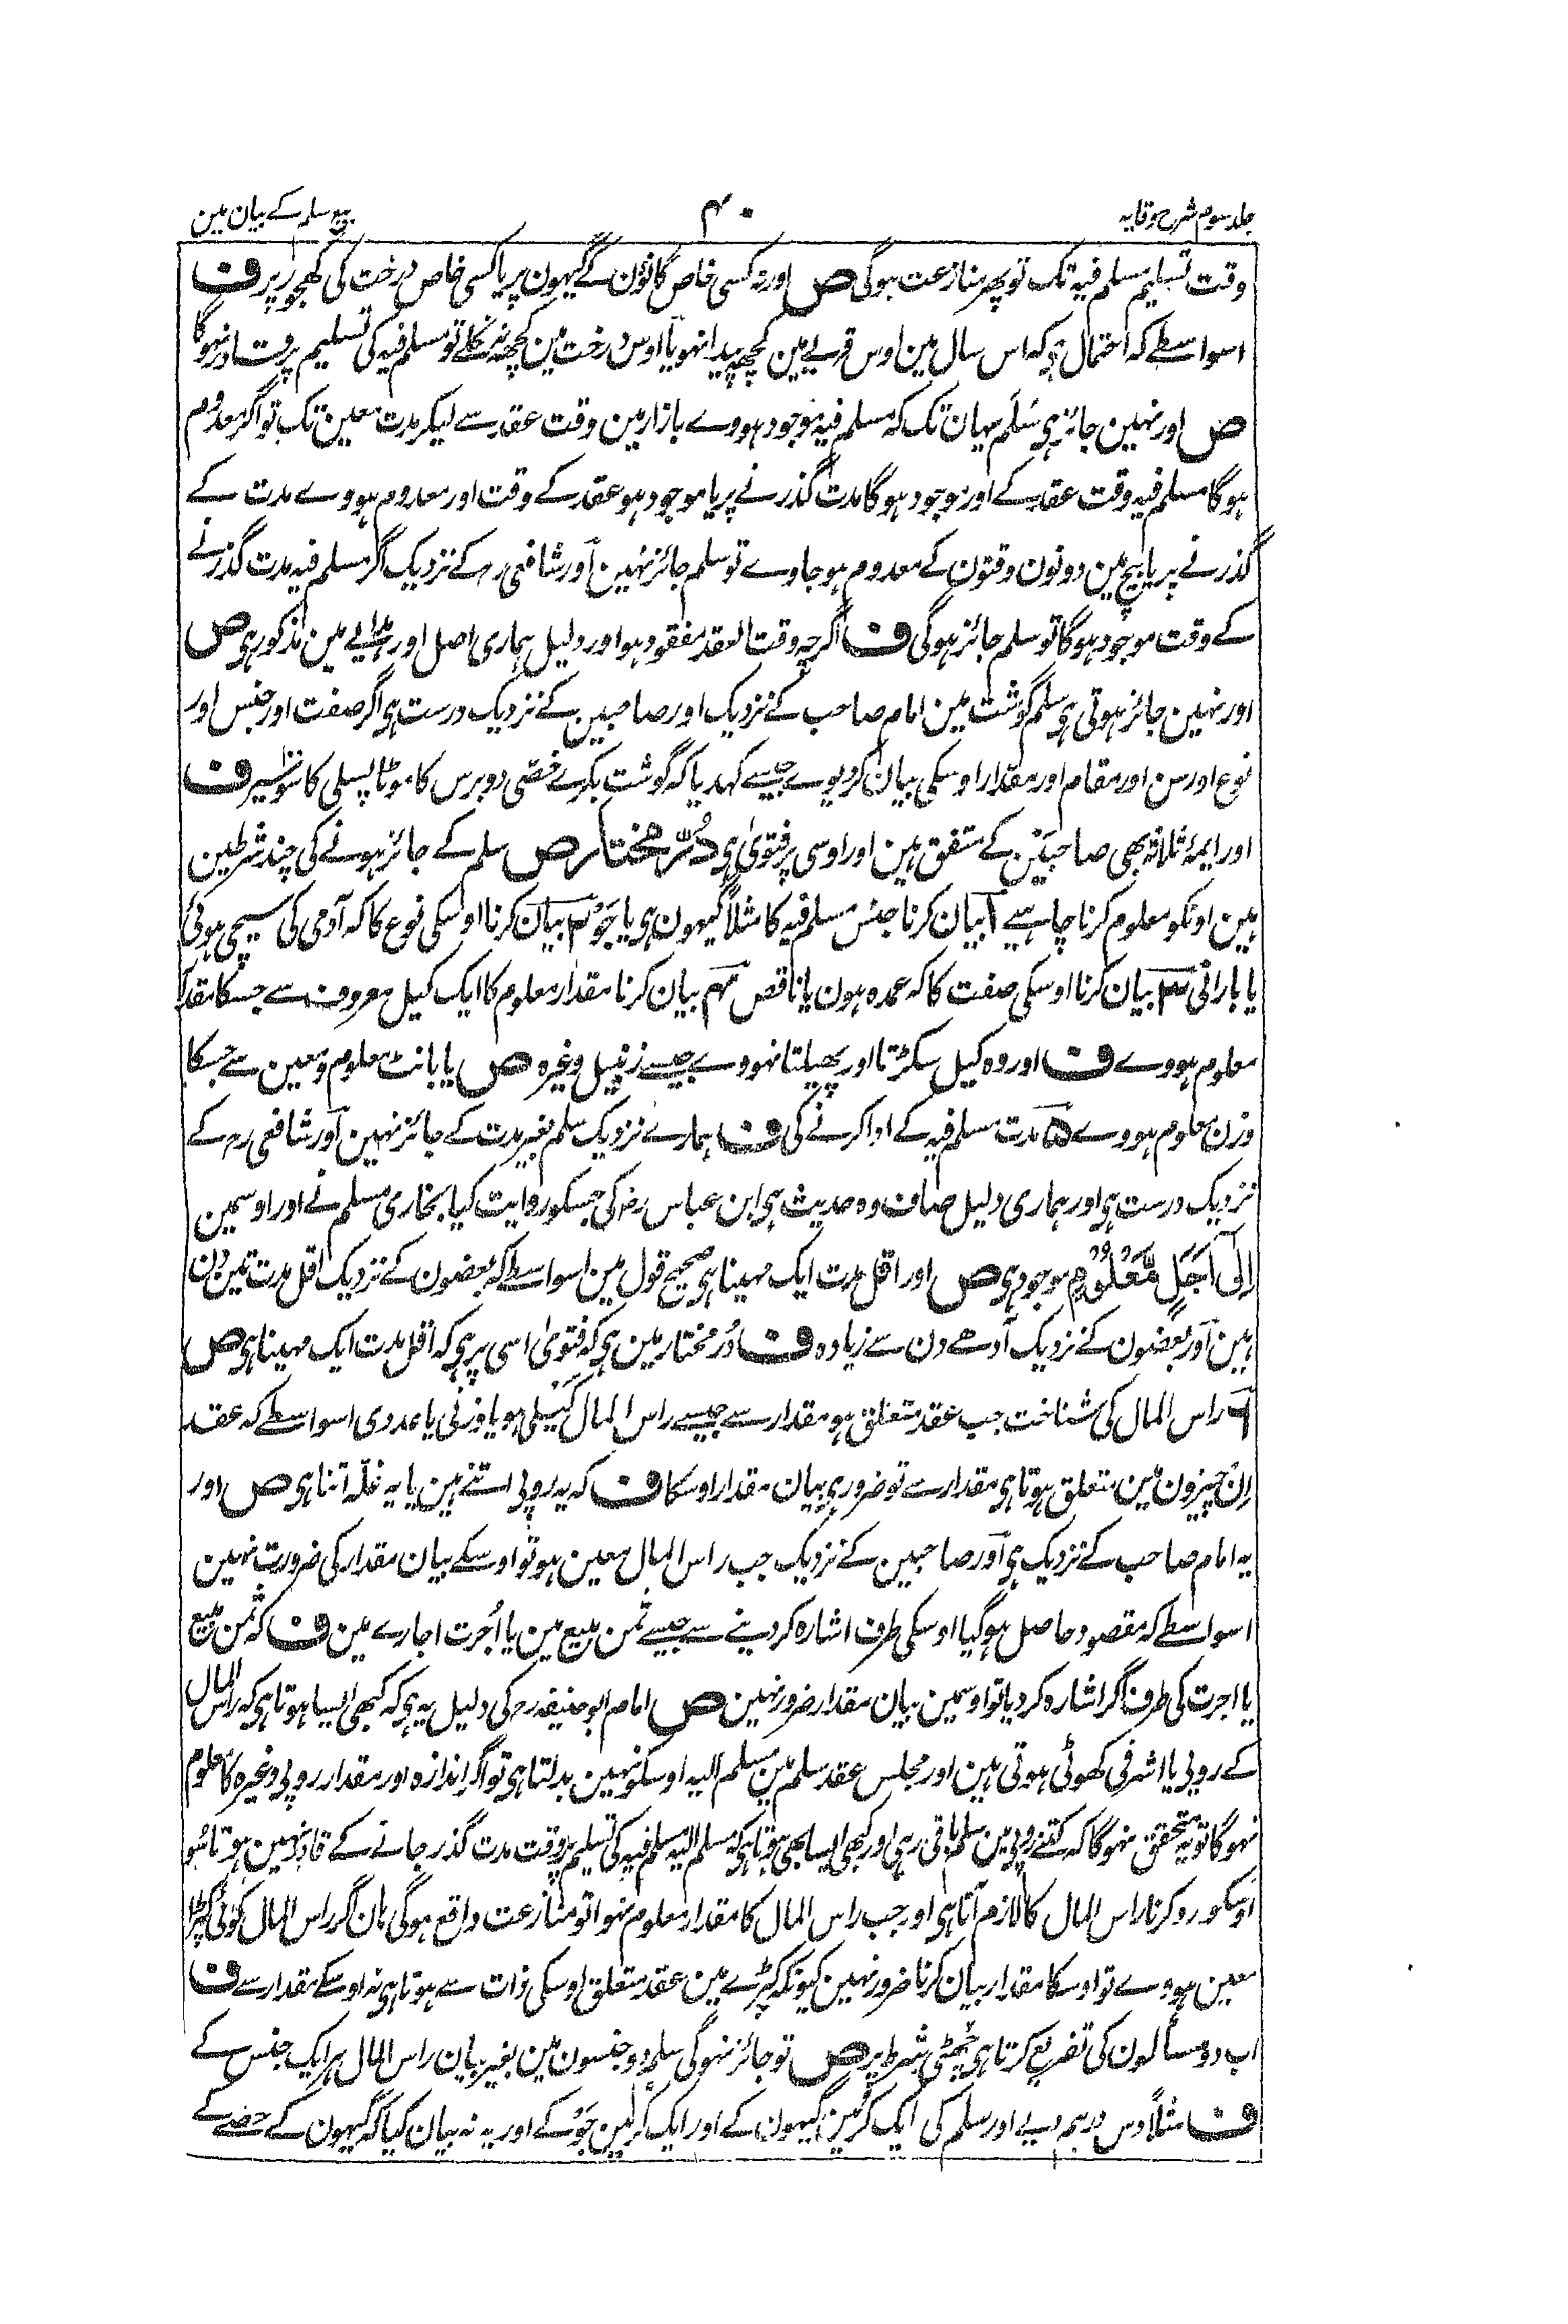 جلد سوم شرح وقایہ
۴۰
بیع سلم کے بیان مین
وقت تسلیم مسلم فیہ تک تو پھر منازعت ہوگی ص اور نہ کسی خاص گانؤن کے گیہون پر یا کسی خاص درخت کی کھجور پر ف
اسواسطے کہ احتمال ہی کہ اس سال مین اوس قریے مین کچھ پیدا نہو یا اوس درخت مین کچھ نہ نکلے تو مسلم فیہ کی تسلیم پر قادر نہوگا
ص اور نہین جائز ہی سَلَم یہان تک کہ مسلم فیہ موجود ہووے بازار مین وقت عقد سے لیکر مدت معین تک تو اگر معدوم
ہوگا مسلم فیہ وقت عقد کے اور موجود ہوگا مدت گذرنے پر یا موجود ہو عقد کے وقت اور معدوم ہووے مدت کے
گذرنے پر یا بیچ مین دونون وقتون کے معدوم ہوجاوے تو سلم جائز نہین اور شافعی رح کے نزدیک اگر مسلم فیہ مدت گذرنے
کے وقت موجود ہوگا تو سلم جائز ہوگی ف اگرچہ وقت العقد مفقود ہو اور دلیل ہماری اصل اور ہدایے مین مذکور ہی ص
اور نہین جائز ہوتی ہی سلم گوشت مین امام صاحب کے نزدیک اور صاحبین کے نزدیک درست ہی اگر صفت اور جنس اور
نوع اور سن اور مقام اور مقدار اوسکی بیان کردیوے جیسے کہدیا کہ گوشت بکرے خصّی دو برس کا موٹا پسلی کا سَو سیر ف
اور ایمۂ ثلاثہ بھی صاحبَین کے متفق ہین اور اوسی پر فتویٰ ہی دُرِّ مختار ص سلم کے جائز ہونے کی چند شرطین
ہین اونکو معلوم کرنا چاہیے ۱ بیان کرنا جنس مسلم فیہ کا مثلاً گیہون ہی یا جَو ۲ بیان کرنا اوسکی نوع کا کہ آدمی کی سینچی ہوئی
یا بارانی ۳ بیان کرنا اوسکی صفت کا کہ عمدہ ہون یا ناقص ۴ بیان کرنا مقدار معلوم کا ایک کیل معروف سے جسکا مقدار
معلوم ہووے ف اور وہ کیل سکڑتا اور پھیلتا نہووے جیسے زنبیل وغیرہ ص یا بانٹ معلوم و معین سے جسکا
وزن معلوم ہووے ۵ مدت مسلم فیہ کے ادا کرنے کی ف ہمارے نزدیک سلم بغیر مدت کے جائز نہین اور شافعی رح کے
نزدیک درست ہی اور ہماری دلیل صاف وہ حدیث ہی ابن عباس رض کی جسکو روایت کیا بخاری مسلم نے اور اوسمین
اِلیٰ اَجَلٍ مَّعْلُوْمٍ موجود ہی ص اور اقل مدت ایک مہینا ہی صحیح قول مین اسواسطے کہ بعضون کے نزدیک اقل مدت تین دن
ہین اور بعضون کے نزدیک آدھے دن سے زیادہ ف دُر مختار مین ہی کہ فتویٰ اسی پر ہی کہ اقل مدت ایک مہینا ہی ص
۶ راس المال کی شناخت جب عقد متعلق ہو مقدار سے جیسے راس المال کَیلی ہو یا وزنی یا عددی اسواسطے کہ عقد
اِن چیزون مین متعلق ہوتا ہی مقدار سے تو ضرور ہی بیان مقدار اوسکا ف کہ یہ روپی اتنے ہین یا یہ غلّہ اتنا ہی ص اور
یہ امام صاحب کے نزدیک ہی اور صاحبین کے نزدیک جب راس المال معین ہو تو اوسکے بیان مقدار کی ضرورت نہین
اسواسطے کہ مقصود حاصل ہوگیا اوسکی طرف اشارہ کردینے سے جیسے ثمن مبیع مین یا اُجرت اجارے مین ف کہ ثمن مبیع
یا اجرت کی طرف اگر اشارہ کردیا تو اوسمین بیان مقدار ضرور نہین ص امام ابوحنیفہ رح کی دلیل یہ ہی کہ کبھی ایسا ہوتا ہی کہ راس المال
کے روپی یا اشرفی کھوٹی ہوتی ہین اور مجلس عقد سلم مین مسلم الیہ اوسکو نہین بدلتا ہی تو اگر اندازہ اور مقدار روپی وغیرہ کا معلوم
نہوگا تو یہ متحقق نہوگا کہ کتنے روپی مین سلم باقی رہی اور کبھی ایسا بھی ہوتا ہی کہ مسلم الیہ مسلم فیہ کی تسلیم پر وقت مدت گذر جانے کے قادر نہین ہوتا سُو
اوسکو رد کرنا راس المال کا لازم آتا ہی اور جب راس المال کا مقدار معلوم نہوا تو منازعت واقع ہوگی ہان اگر راس المال کوئی کپڑا
معین ہووے تو اوسکا مقدار بیان کرنا ضرور نہین کیونکہ کپڑے مین عقد متعلق اوسکی ذات سے ہوتا ہی نہ اوسکے مقدار سے ف
اب دو مسألون کی تفریع کرتا ہی چھٹی شرط پر ص تو جائز نہوگی سلم دو جنسون مین بغیر بیان راس المال ہر ایک جنس کے
ف مثلاً دس درہم دیے اور سلم کی ایک کُر مین گیہون کے اور ایک کُر مین جَو کے اور یہ نہ بیان کیا کہ گیہون کے حصّے کے